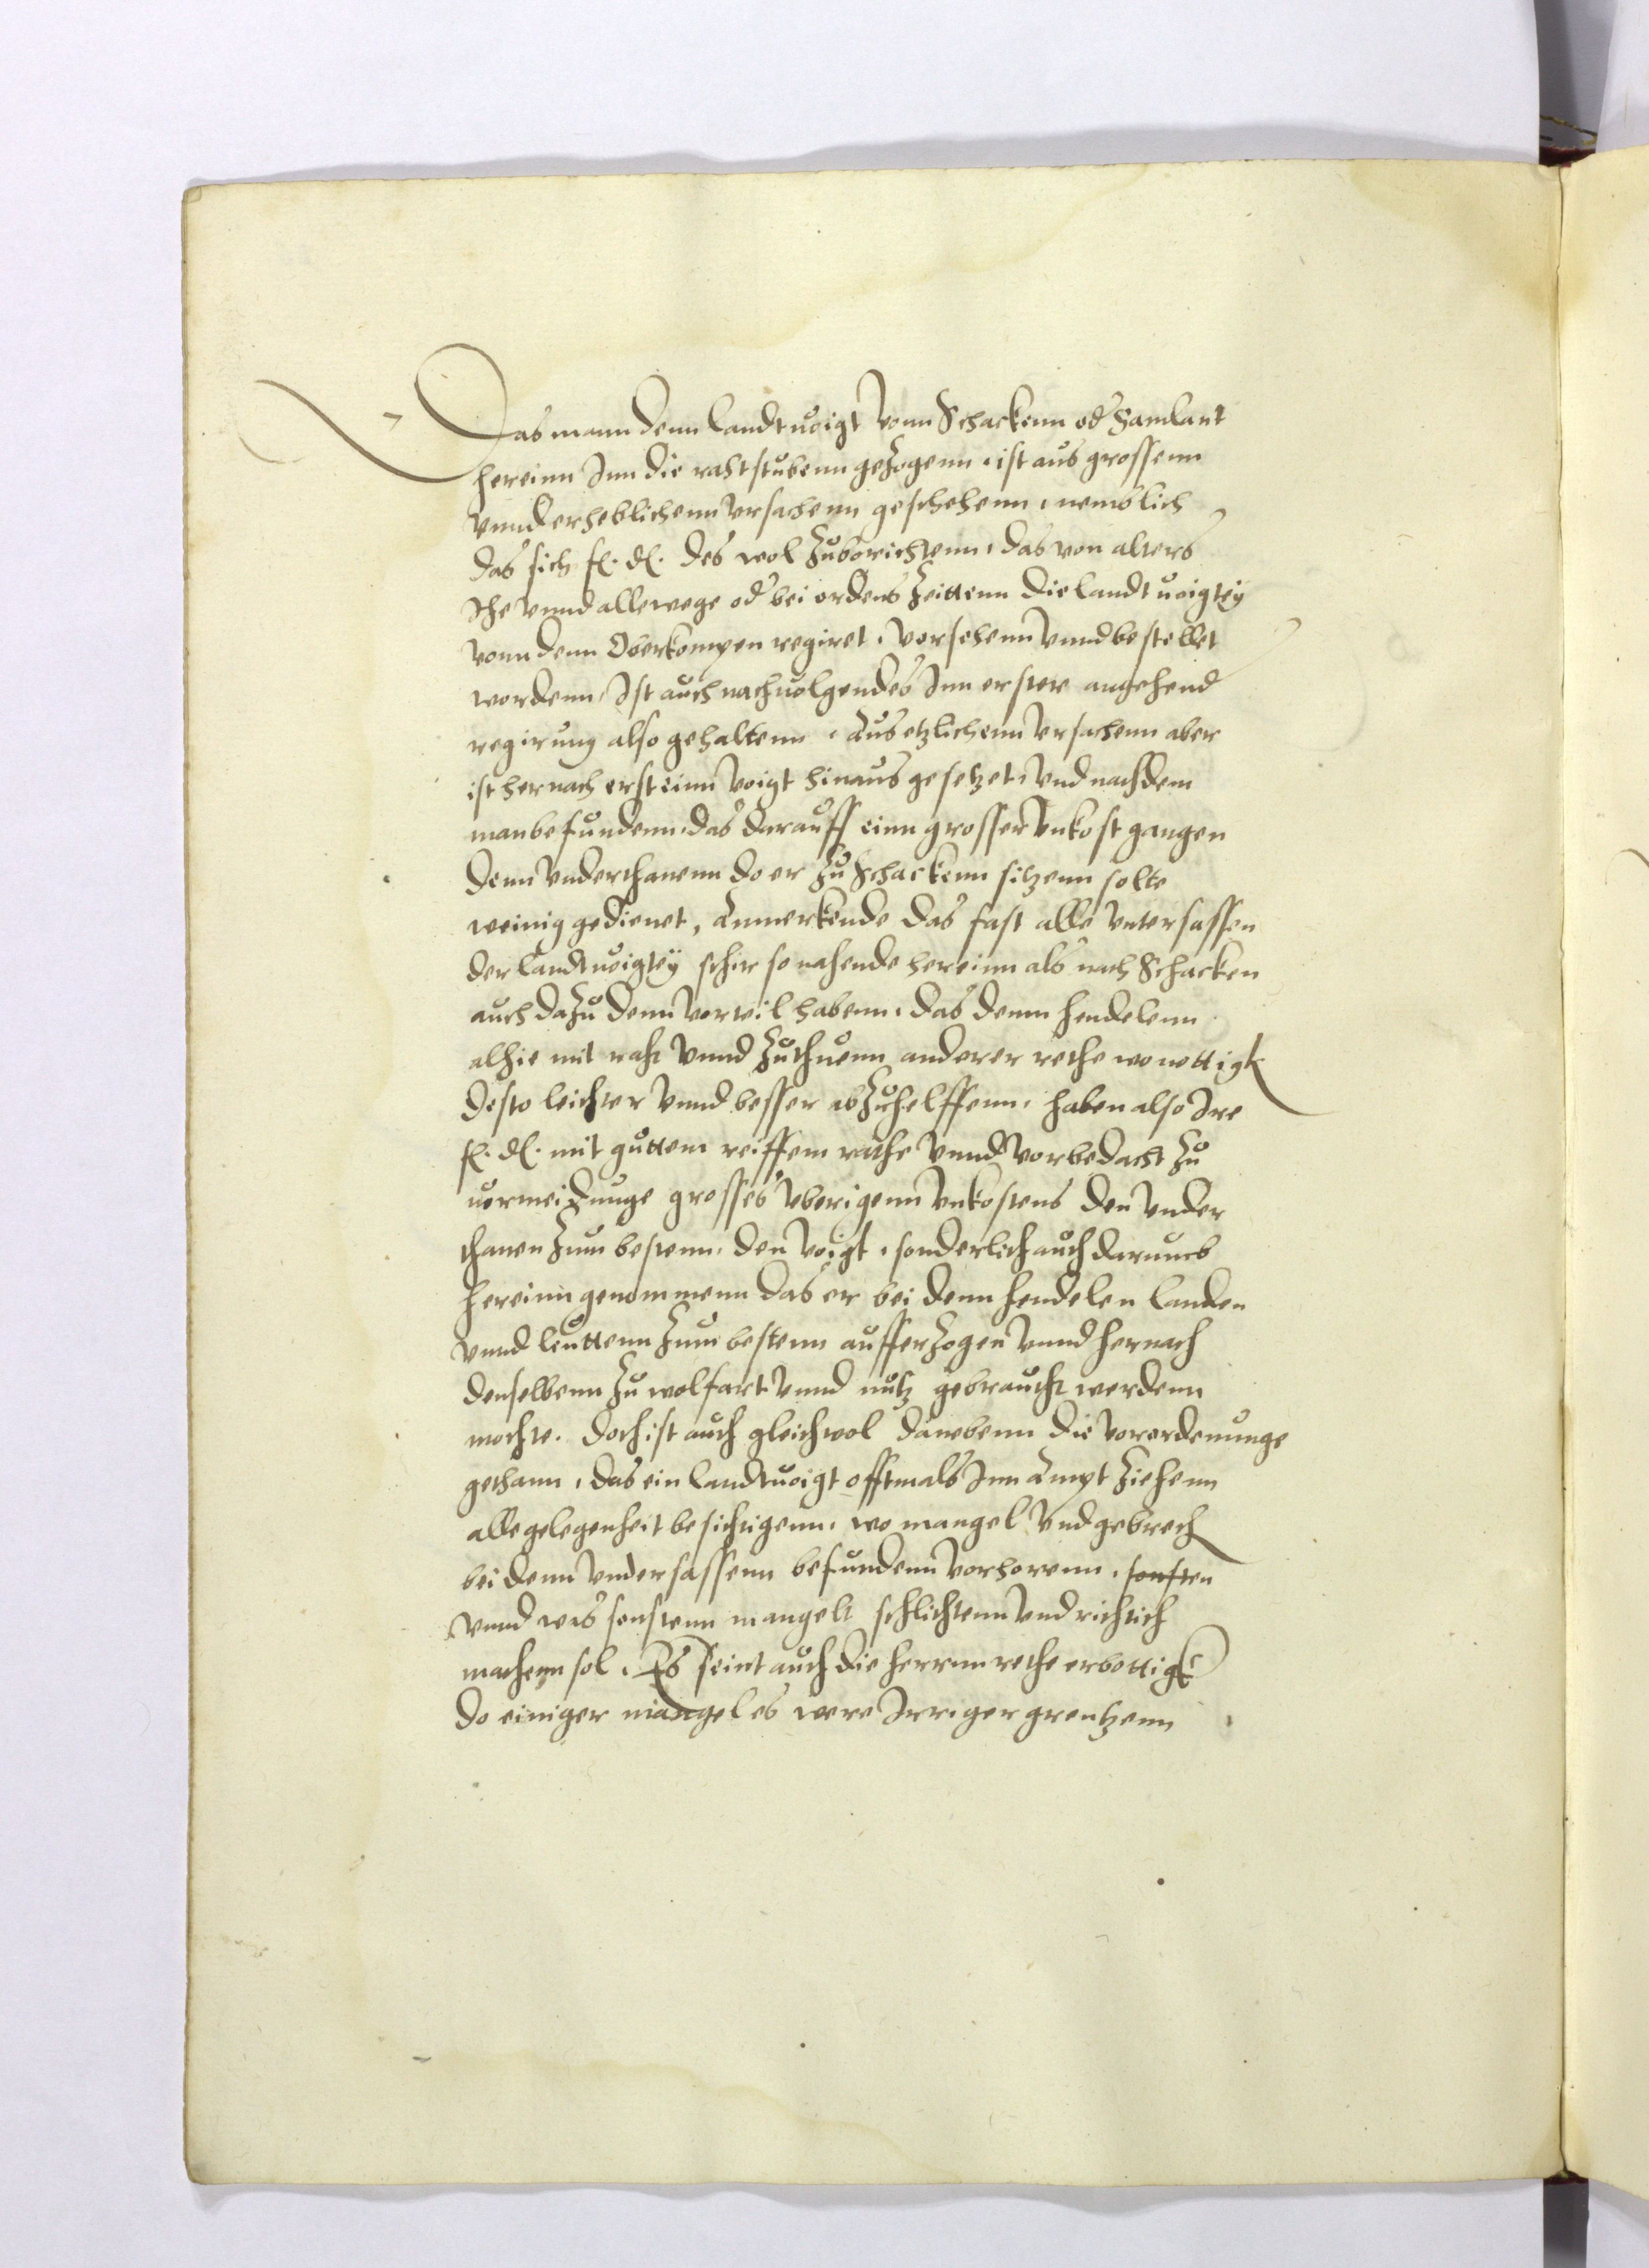 Das mann denn landtuoigt vonn Schackenn od Samlant
hereinn Inn die rahtstubenn gezogenn, ist aus grossenn
vnnd erheblichenn vrsachenn geschehenn, nemblich
das sich f. d. des wol zuborichtenn, das von alters
Ihe vnnd allewege od bei ordens Zeittenn die landtuoigtey
vonn denn Oberkompen regiret, vorsehenn vnnd bestellet
wordenn, Ist auch nachuolgendes Inn erster angehend
regirung also gehaltenn, Aus etzlichenn vrsachenn aber
ist hernach erst einn voigt hinaus gesetzet, vnd nachdem
man befundenn, das darauff einn grosser vnkost gangen
denn vnderthanenn do er zu Schackenn sitzenn solte
weinig gedienet, Anmerkende das fast alle vntersassen
der landtuoigtey schir so nahende hereinn als nach Schacken
auch dazu denn vorteil habenn, das denn hendelenn
alhie mit raht vnnd zuthuenn anderer rethe wo nottigk
desto leichter vnnd besser abzuhelffenn, haben also Ire
f. d. mit guttem reiffem rathe vnnd vorbedacht zu
uormeidunge grosses vberigenn vnkostens den vnder
thanen zum bestenn, den voigt, sonderlich auch darumb
hereinn genommenn das er bei denn hendelen landen
vnnd leuttenn zum bestenn aufferzogen vnnd hernach
denselbenn zu wolfart vnnd nutz gebraucht werdenn
mochte. doch ist auch gleichwol danebenn die vorordenunge
gethann, das ein landtuoigt offtmals Inn Ampt ziehenn
alle gelegenheit besichtigenn, wo mangel vnd gebrech
bei denn vndersassenn befundenn vorhorenn, sonsten
vnnd was sonstenn mangelt schlichtenn vnd richtich
machenn sol, Es seint auch die herrnn rethe erbottigk
do einiger mangel es were Irriger grentzenn